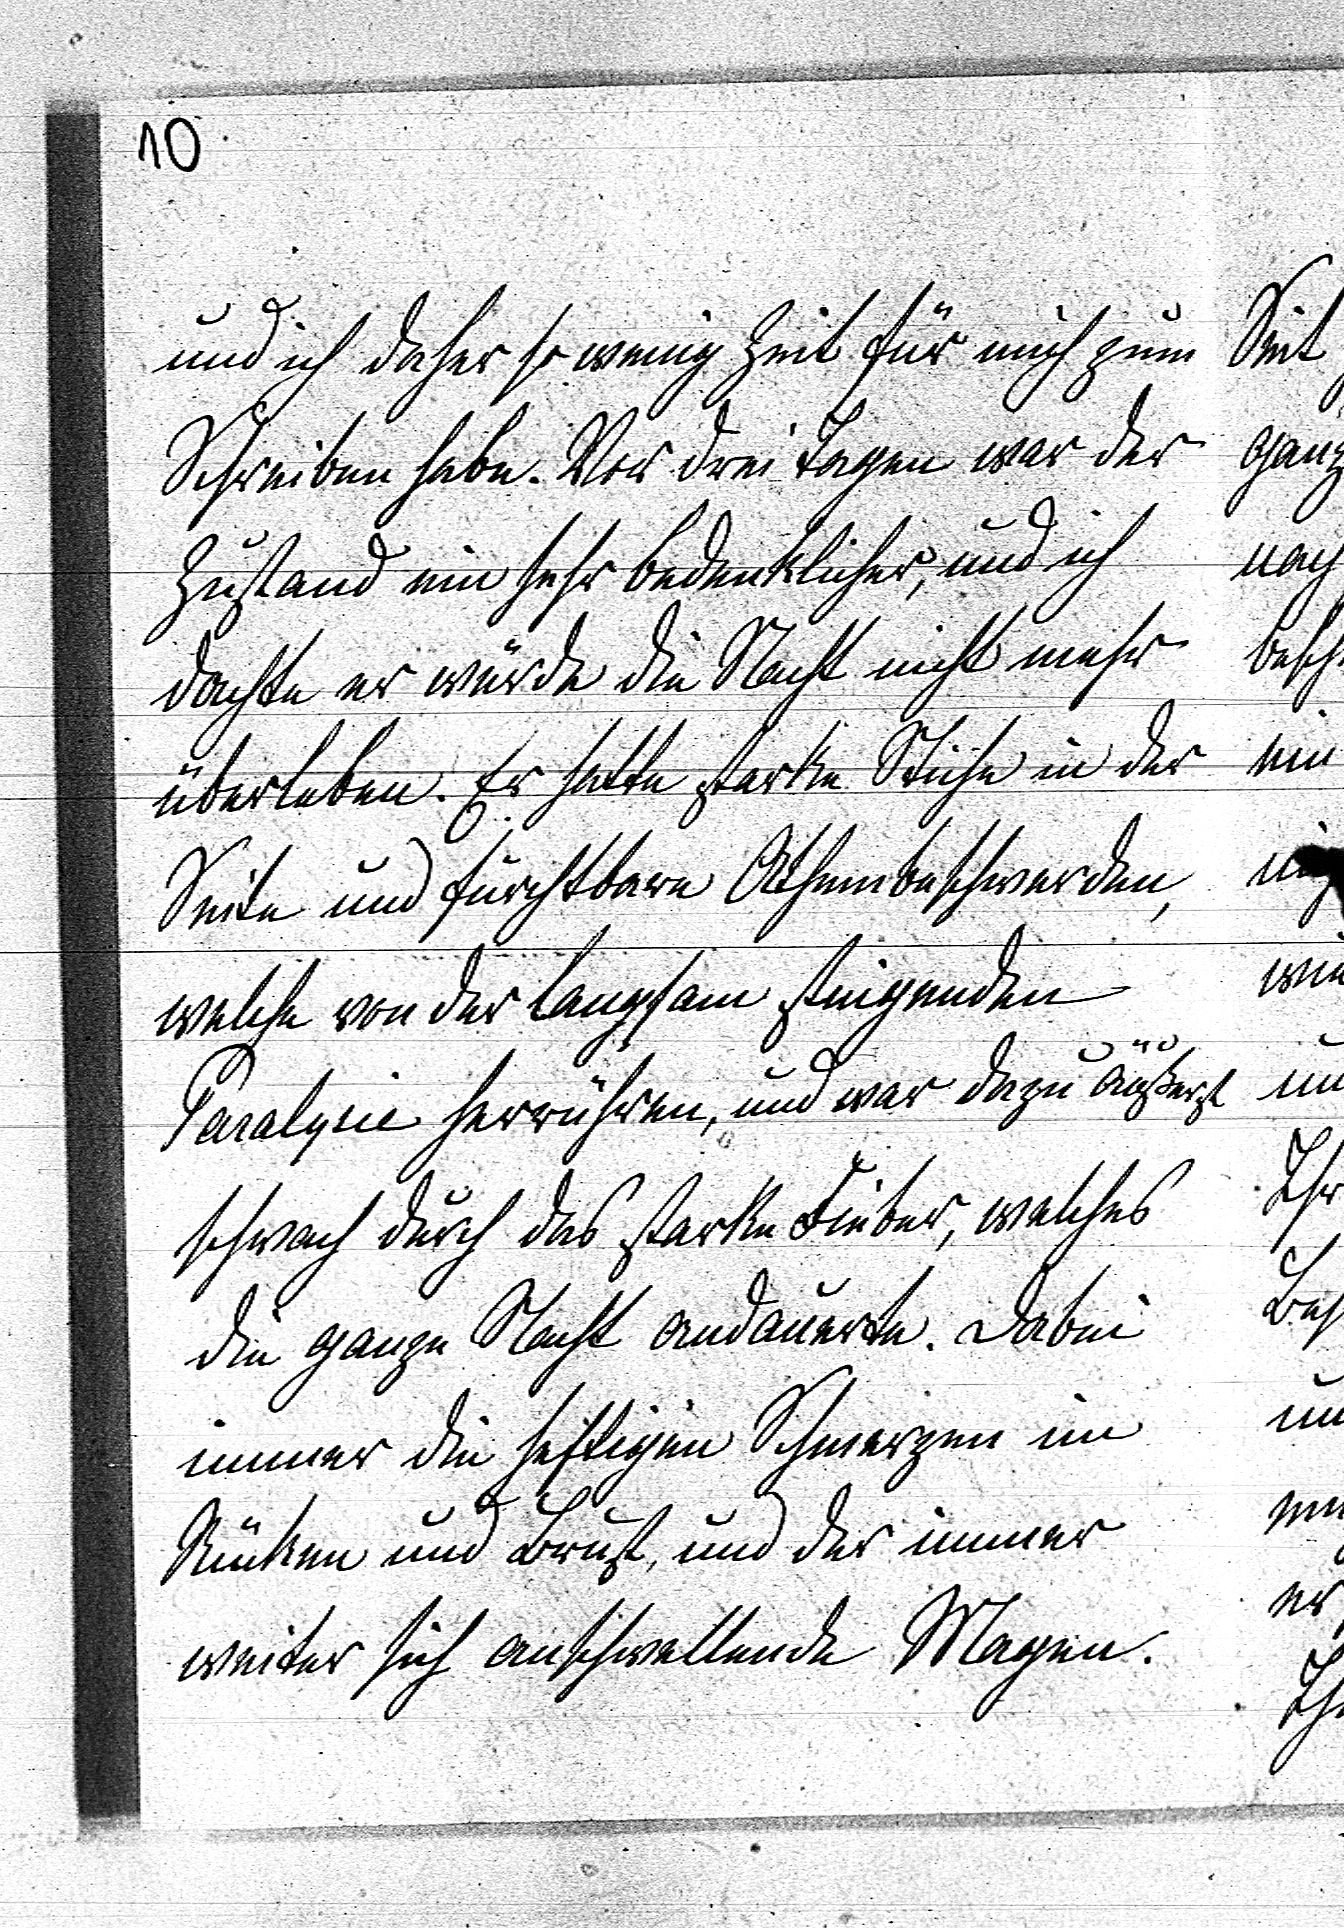 10
und ich daher so wenig Zeit für mich zum
Schreiben habe. Vor drei Tagen war der
Zustand ein sehr bedenklicher, und ich
dachte er würde die Nacht nicht mehr
überleben. Er hatte starke Stiche in der
Seite und furchtbare Athembeschwerden,
welche von der langsam steigenden
Paralysie herrühren, und war dazu äußerst
schwach durch das starke Fieber, welches
die ganze Nacht andauerte. Dabei
immer die heftigen Schmerzen im
Rücken und Brust, und der immer
weiter sich anschwellende Magen.
Seit
ganz